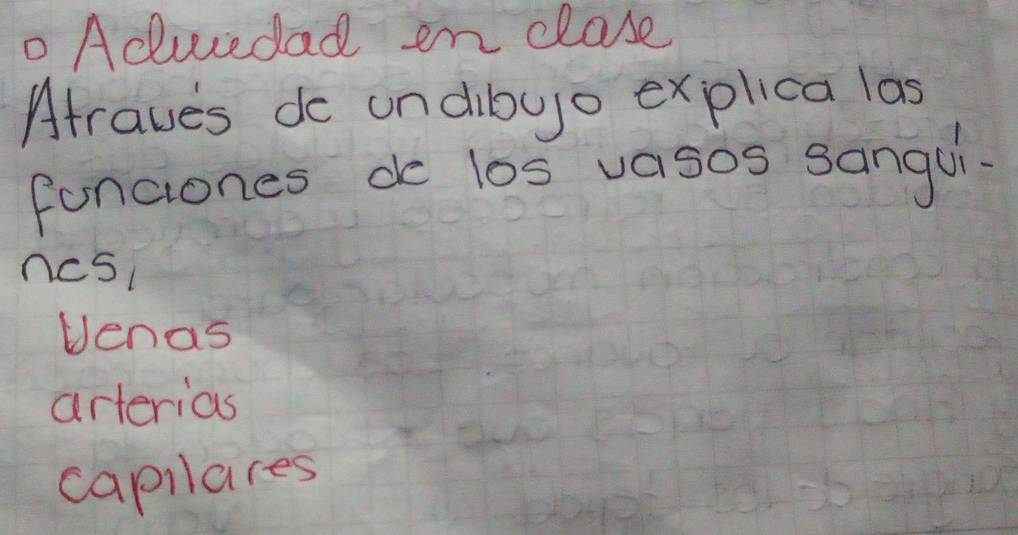 o Actividad en clase
Através de un dibujo explica las
funciones de los vasos sanguí-
nes,
Venas
arterias
capilares